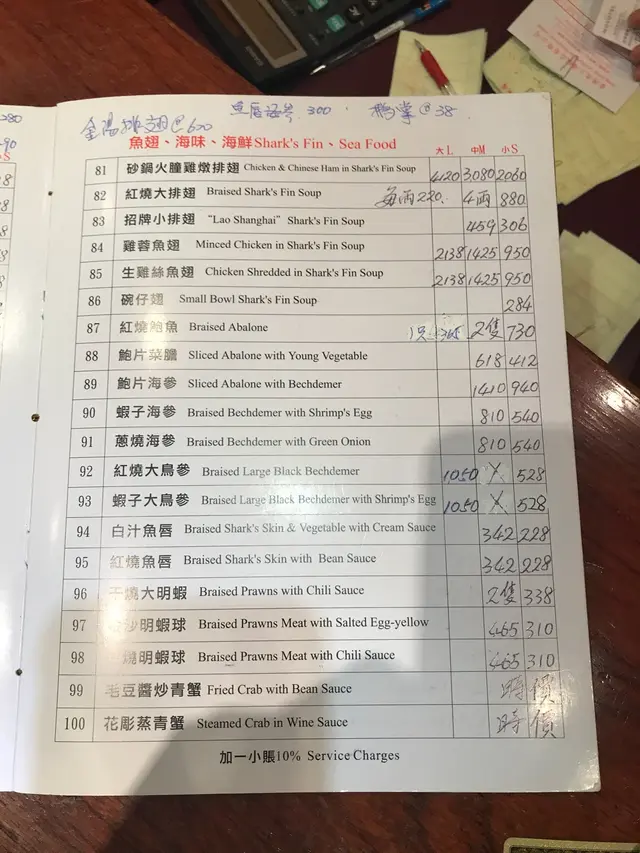 280
魚唇海參 300 . 鵝掌@38.
金湯排翅@600
魚翅、海味、海鮮Shark's Fin、Sea Food 大L 中M 小S
81 砂鍋火朣雞燉排翅 Chicken & Chinese Ham in Shark's Fin Soup 4120 3080 2060
82 紅燒大排翅 Braised Shark's Fin Soup 每兩220. 4兩 880
83 招牌小排翅 “Lao Shanghai” Shark's Fin Soup 459 306
84 雞蓉魚翅 Minced Chicken in Shark's Fin Soup 2138 1425 950
85 生雞絲魚翅 Chicken Shredded in Shark's Fin Soup 2138 1425 950
86 碗仔翅 Small Bowl Shark's Fin Soup 284
87 紅燒鮑魚 Braised Abalone 1只 365 2隻 730
88 鮑片菜膽 Sliced Abalone with Young Vegetable 618 412
89 鮑片海參 Sliced Abalone with Bechdemer 1410 940
90 蝦子海參 Braised Bechdemer with Shrimp's Egg 810 540
91 蔥燒海參 Braised Bechdemer with Green Onion 810 540
92 紅燒大烏參 Braised Large Black Bechdemer 1050 X 528
93 蝦子大烏參 Braised Large Black Bechdemer with Shrimp's Egg 1050 X 528
94 白汁魚唇 Braised Shark's Skin & Vegetable with Cream Sauce 342 228
95 紅燒魚唇 Braised Shark's Skin with Bean Sauce 342 228
96 干燒大明蝦 Braised Prawns with Chili Sauce 2隻 338
97 沙明蝦球 Braised Prawns Meat with Salted Egg-yellow 465 310
98 燒明蝦球 Braised Prawns Meat with Chili Sauce 465 310
99 毛豆醬炒青蟹 Fried Crab with Bean Sauce 時價
100 花彫蒸青蟹 Steamed Crab in Wine Sauce 時價
加一小賬10% Service Charges